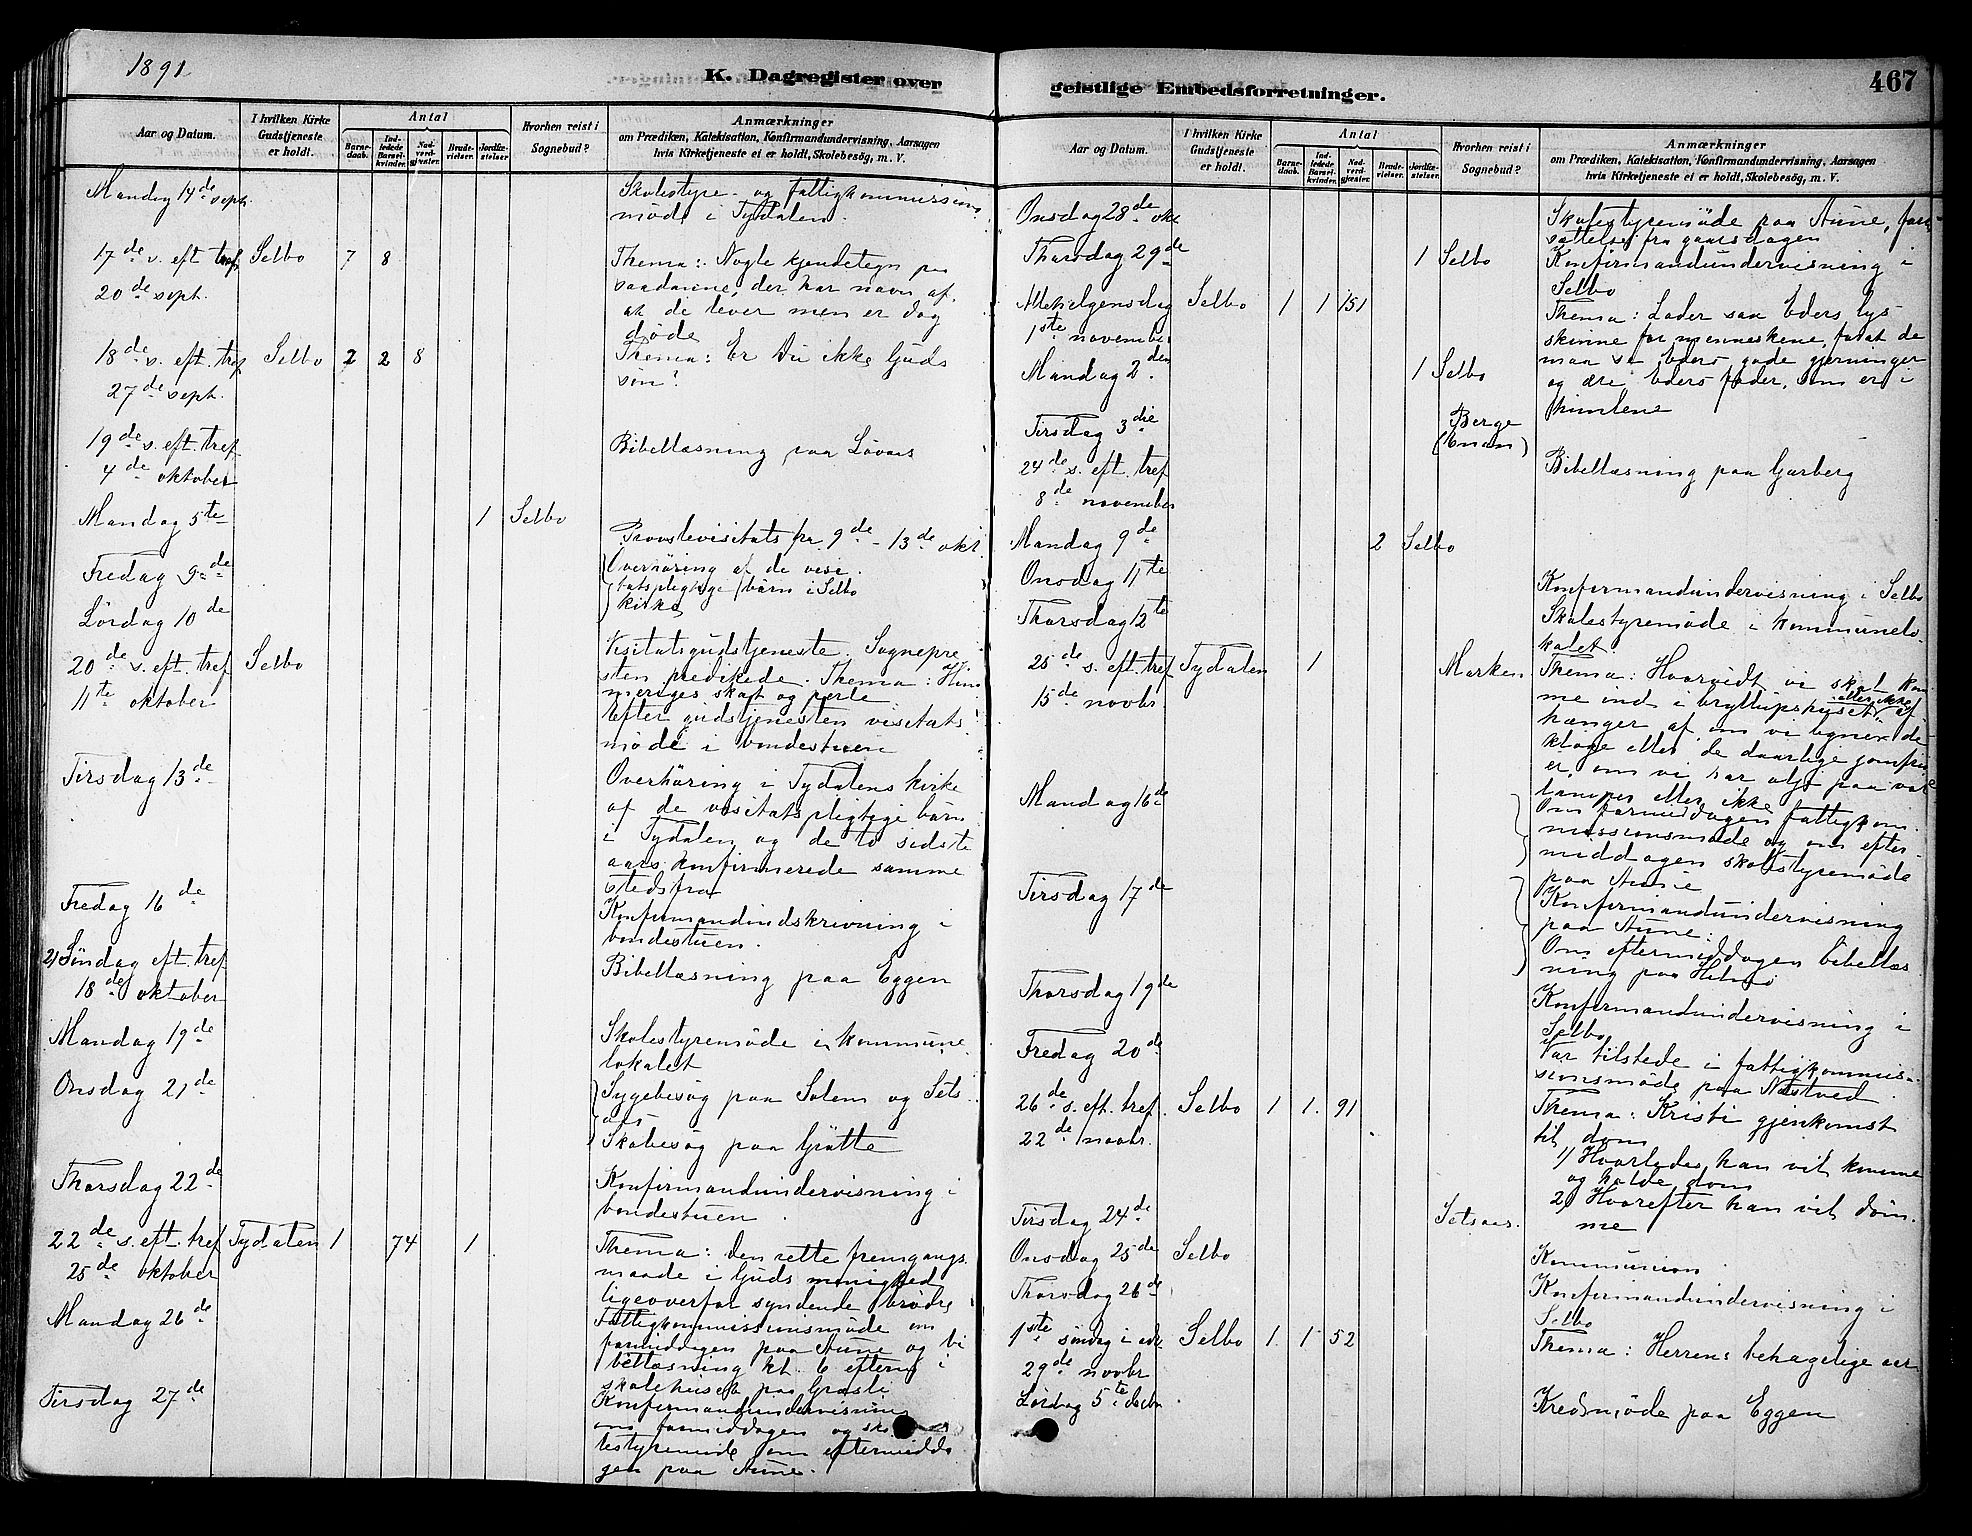 1891
K. Dagregister over
Aar og Datum.
I hvilken Kirke Gudstjeneste er holdt.
Antal
Barnedaab.
Indledede Barselkvinder.
Nadverdgjester.
Brudevielser.
Jordfæstelser
Hvorhen reist i Sognebud?
Anmærkninger
om Prædiken, Katekisation, Konfirmandundervisning, Aarsagen
hvis Kirketjeneste ei er holdt, Skolebesög, m. V.
Mandag 14de sept.
Skolestyre- og fattigkommissions
möde i Tydalen.
17de s. eft. tref. Selbo 7 8
20de sept.
Thema: Nogle kjendetegn paa
saadanne, der har navn af,
at de lever men er dog
döde
18de s. eft. tref Selbo 2 2 8
27de sept.
Thema: Er Du ikke Guds
sön?
19de s. eft. tref
4de oktober
Bibellæsning paa Lövaas
Mandag 5te 1 Selbo
Fredag 9de
Provstevisitats fra 9de - 13de okt.
Overhöring af de visi
tatspligtige börn i Selbo
kirke
Lördag 10de
20de s. eft. tref Selbo
11te oktober
Visitatsgudstjeneste. Sognepre
sten predikede. Thema: Him
meriges skat og perle
Efter gudstjenesten visitats
möde i bondestuen
Tirsdag 13de
Overhöring i Tydalens kirke
af de visitatspligtige börn
i Tydalen og de to sidste
aars konfirmerede samme
stedsfra
Fredag 16de
Konfirmandindskrivning i
bondestuen.
21 Söndag eft. tref.
18de oktober
Bibellæsning paa Eggen
Mandag 19de
Skolestyremöde i kommune
lokalet
Onsdag 21de
Sygebesög paa Solem og Sets
aas
Skolebesög paa Grötte
Thorsdag 22de
Konfirmandundervisning i
bondestuen.
22de s. eft. tref Tydalen 1 74 1
25de oktober
Thema: Den rette fremgangs
maade i Guds menighed
ligeoverfor syndende brödre
Mandag 26de
Fattigkommissionsmöde om
formiddagen paa Aune og bi
bellæsning kl. 6 efterm i
skolehuset paa Græsli
Tirsdag 27de
Konfirmandundervisning
om formiddagen og sko
lestyremöde om eftermidda
gen paa Aune.
geistlige Embedsforretninger.
467
Aar og Datum.
I hvilken Kirke Gudstjeneste er holdt.
Antal
Barnedaab.
Indledede Barselkvinder.
Nadverdgjester.
Brudevielser.
Jordfæstelser.
Hvorhen reist i Sognebud?
Anmærkninger
om Prædiken, Katekisation, Konfirmandundervisning, Aarsagen
hvis Kirketjeneste ei er holdt, Skolebesög, m. V.
Onsdag 28de okt
Skolestyremöde paa Aune, fort
sættelse fra gaarsdagen
Thorsdag 29de 1 Selbo
Konfirmandundervisning i
Selbo
Allehelgensdag Selbo 1 1 151
1ste november
Thema: Lader saa Eders lys
skinne for menneskene, forat de
maa se Eders gode gjerninger
og ære Eders fader, som er i
himlene
Mandag 2den 1 Selbo
Tirsdag 3die Berge
24de s. eft. tref
8de november
Bibellæsning paa Garberg
Mandag 9de 2 Selbo
Onsdag 11te
Konfirmandundervisning i Selbo
Thorsdag 12te
Skolestyremöde i kommunelo
kalet.
25de s. eft. tref Tydalen 1 Marken
15de novbr.
Thema: Hvorvidt vi skal kom
me ind i bryllupshuset eller ikke af
hænger af, om vi ligner de
kloge eller de daarlige jomfru
er, om vi har olje paa vore
lamper eller ikke
Mandag 16de
Om formidagen fattigkom
missionsmöde og om efter-
middagen skolestyremöde
paa Aune
Tirsdag 17de
Konfirmandundervisning
paa Aune.
Om eftermiddagen bibellæs
ning paa Hilmo
Thorsdag 19de
Konfirmandundervisning i
Selbo
Fredag 20de
Var tilstede i fattigkommis-
sionsmöde paa Næstved
26de s. eft. tref. Selbo 1 1. 91
22de novbr.
Thema: Kristi gjenkomst
til dom
1) Hvorledes han vil komme
og holde dom
2) Hvorefter han vil döm
me
Tirsdag 24de Setsaas.
Onsdag 25de Selbo
Kommunion.
Thorsdag 26de
Konfirmandundervisning i
Selbo
1ste söndag i adv Selbo 1. 1 52
29de novbr
Thema: Herrens behagelige aar
Lördag 5te decbr.
Kredsmöde paa Eggen